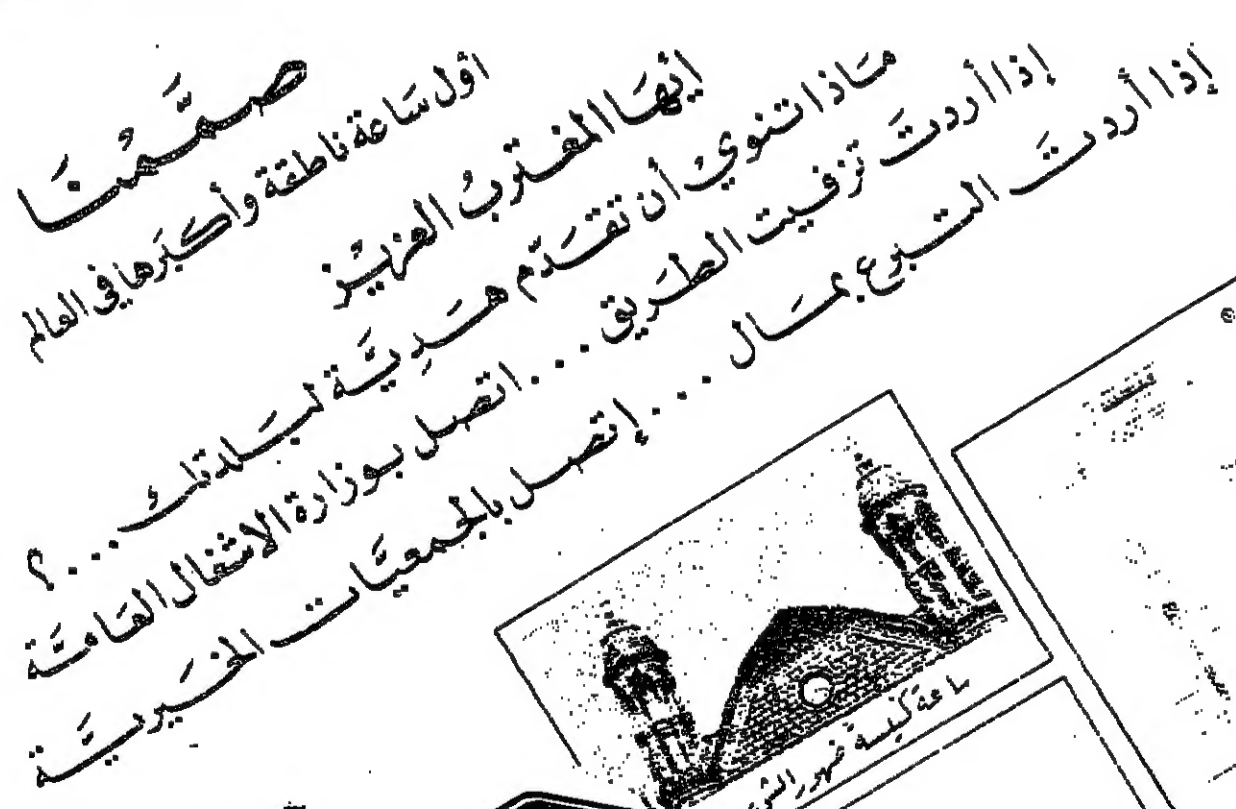 صمَّمنَا
أوّل سَاعة ناطقة وأكبَرها في العالم
أيّهَا المغتربُ العزيز
مَاذا تنوي أن تقدّم هَديَّة لبَلدتك ....؟
إذا أردتَ تزفيت الطَريق ... اتصل بوزارة الاشغال العَامَّة
إذا أردتَ التبرع بمَال ... إتصل بالجمعيَّات الخيريَّة
ساعة كنيسة ضهور الشو